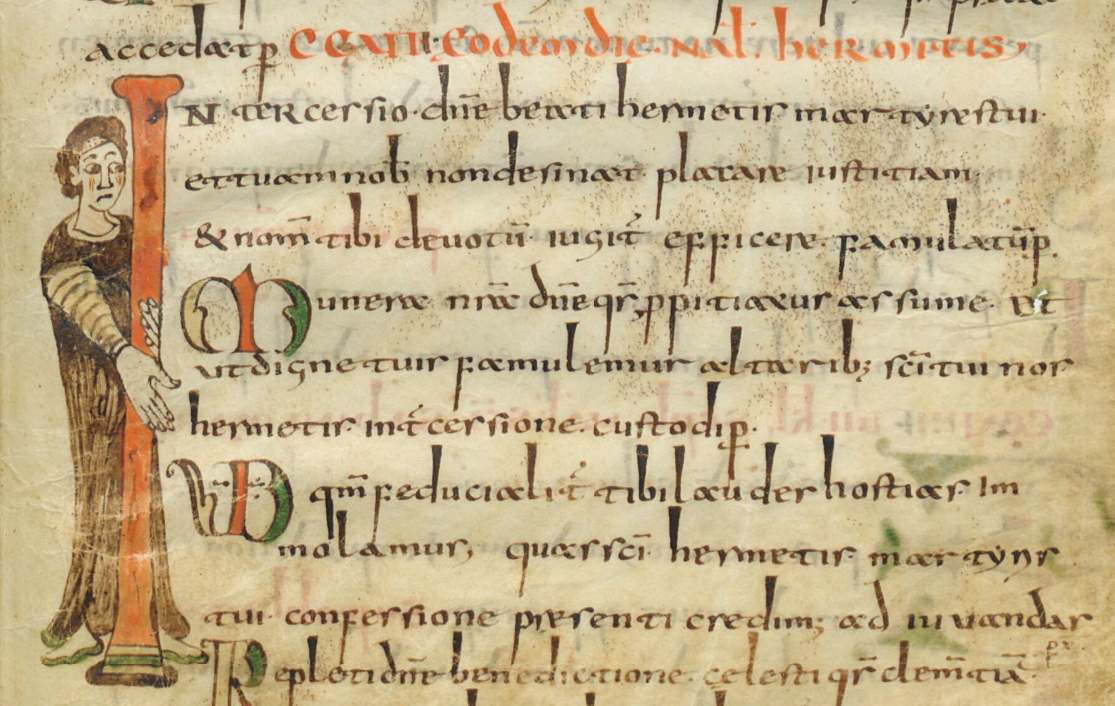 accedat p̄ CCXVII· Eodem die Nat̄· hermetis,
INtercessio· dn̄e beati hermetis martyrestui·
ettuam nob̄ nondesinat· placare iustitiam·
& nom̄ tibi devotū iugit̄ efficere· famulatū p̄.
Munera n̄r̄ā dn̄e qs̄ p̱pitiatus assume· et
ut digne tuis famulemur altarib; sc̄i tui nos
hermetis int̄cessione· custodi p̄.
VD qm̄ feducialit̄ tibi laudes hostias Im
molamus, quas sc̄i hermetis martyris
tui· confessione presenti credim; ad iuvandas
Repleti dn̄e benedictione· celesti qs̄ clem̄tiā·